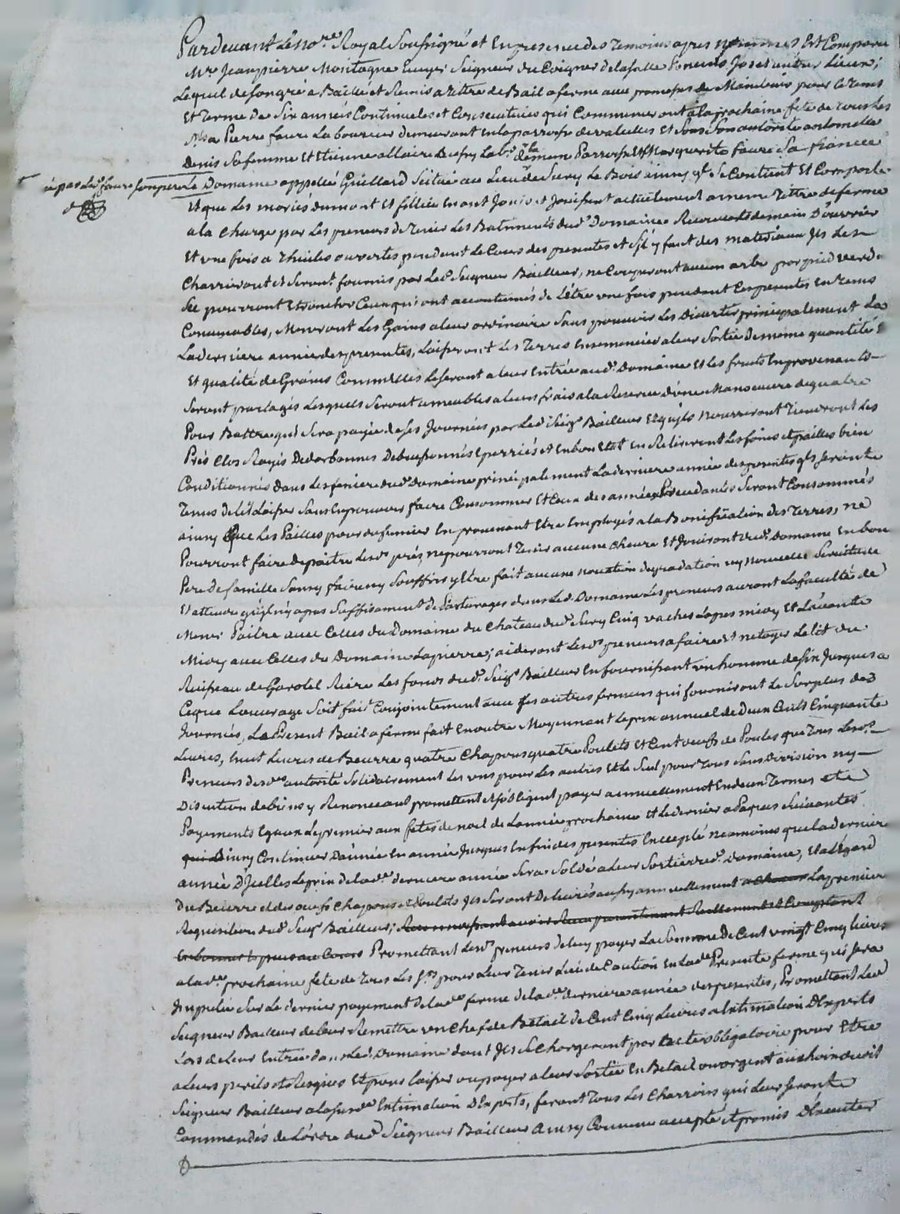 Pardevant Le No.re Royal Soussigné et En presence des Temoins apres nommés Est Comparu
M.re Jean pierre Montagne Ecuyer Seigneur du Coignet de la salle
Lequel de son gré a Baillé et Remis a Titre de Bail a ferme aux promesses de Maintenir pour le Tems
Et Terme de Six années Continuelles et Consecutives qui Commenceront a la prochaine fête de Tous Les
S.ts a Pierre faure Laboureur demeurant En la parroisse de et Sous Son autorité antoinette
Denis Sa femme et Etienne allaire Lab.r demeur. Parroisse et Marguerite faure Sa fiancée
Le Domaine appellé Guillard Situé au Lieu de Sury Le Bois ainsy q.l Se Contient et Comporte
Et que Les mariés dumont et En ont Joui et Jouissent actuellement a meme Titre de ferme
a la Charge par Les preneurs de Tenir Les Batiments du d. Domaine Recouverts de main D'ouvrier
Et une fois a Thuiles ouvertes pendant Le Cours des presentes et S'il y faut des materiaux Ils Les
Charrieront et Seront fournis par Led. Seigneur Bailleur, ne Couperont aucun arbre par pied verd ou
Sec pourront Ebrancher Ceux qui ont accoutumés de L'être une fois pendant Les presentes En Tems
Convenables, Menront Les Gains a leur ordinaire Sans pouvoir Les Divertir principalement La
La derniere année des presentes, Laisseront Les Terres Ensemencées a leur Sortie de meme quantité
Et qualité de Grains Comm'Elles Le Seront a leur Entrée aud. Domaine Et les fruits En provenants
Seront partagés Lesquels Seront ameublés a leurs frais a la Reserve d'une Manoeuvre de quatre
Pour Battre qui Sera payée de Ses Journées par Led. Seig.r Bailleur Et qu'ils Nourriront Tiendront Les
Prés Clos Rayés Debuissonnés Epierrés et En bon Etat En Retireront Les foins et pailles bien
Conditionnés dans Les fenieres du d. domaine principalement La derniere année des presentes q.ls Seront
Tenus de Les Laisser Sans En pouvoir faire Consommer Et Ceux des années Precedantes Seront Consommés
ainsy Que Les Pailles pour du fumier En provenant Etre Employés a la Bonification des Terres, ne
Pourront faire depaitre Les d. prés ne pourront Tenir aucune Chevre Et Jouiront du d. Domaine En bon
Pere de famille Sans y faire ny Souffrir y Etre fait aucune novation degradation ny Nouvelle Servitude
Et attendu qu'il n'y a pas Suffisament de Paturages dans Led. Domaine Les preneurs auront La faculté de
Mener Paitre avec Celles du Domaine du Chateau du d. Sury Cinq vaches Lapres midy Et
Midy avec Celles du Domaine Lapierre; aideront Les d. preneurs a faire Et netoyer Le lit du
Ruisseau de Riere Les fonds du d. Seig.r Bailleur En fournissant un homme de Six Jusques a
Ceque Louvrage Soit fait Conjointement avec Les autres fermiers qui fourniront Le Surplus des
Journées, Le Present Bail a ferme fait En outre Moyennant Le prix annuel de Deux Cents Cinquante
Livres, huit Livres de Beurre quatre Chapons quatre Poulets et Cent oeufs de Poules que Tous Les d.
Preneurs des d. autorité Solidairement Les uns pour Les autres Et le Seul pour Tous Sans Division ny
Discution de biens y Renonceant promettent et S'obligent payer annuellement En deux Termes et
Payements Egaux Le premier aux fêtes de noel de L'année prochaine et Le dernier a Paques Suivantes
ainsy Continuer D'année En année Jusques En fin des presentes Excepté neanmoins que La derniere
année D'Icelles Le prix de La d. derniere année Sera Soldé a Leur Sortie du d. Domaine, Et a L'Egard
Du Beurre et des oeufs Chapons et Poulets Ils Seront Delivrés aussy annuellement a La premiere
Requisition du d. Seig.r Bailleur;
Promettant Les d. preneurs de luy payer La Somme de Cent vingt Cinq Livres
a la d. prochaine fête de Tous Les S.ts pour Leur Tenir Lieu de Caution En La d. Presente ferme qui Sera
Imputée Sur Le dernier payement de La d. ferme de La d. derniere année des presentes, Promettant Led.
Seigneur Bailleur de leur Remettre un Chef de Betail de Cent Cinq Livres a Estimation D'Experts
Lors de Leur Entrée dans Led. Domaine dont Ils Se Chargeront par acte obligatoire pour Etre
a Leurs perils et risques Et pour Laisser ou payer a leur Sortie En Betail ou argent au choix du dit
Seigneur Bailleur a la sus d. Estimation D'Experts, feront Tous Les Charrois qui Leur Seront
Commandés de L'ordre du d. Seigneur Bailleur ainsy Convenu accepté et promis D'Executer
a pas Led. faure